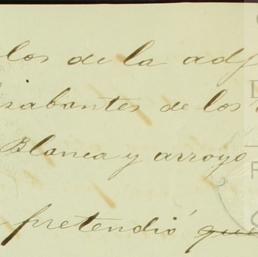 los de la adj
rabantes de los
Blanca y arroyo
pretendió que